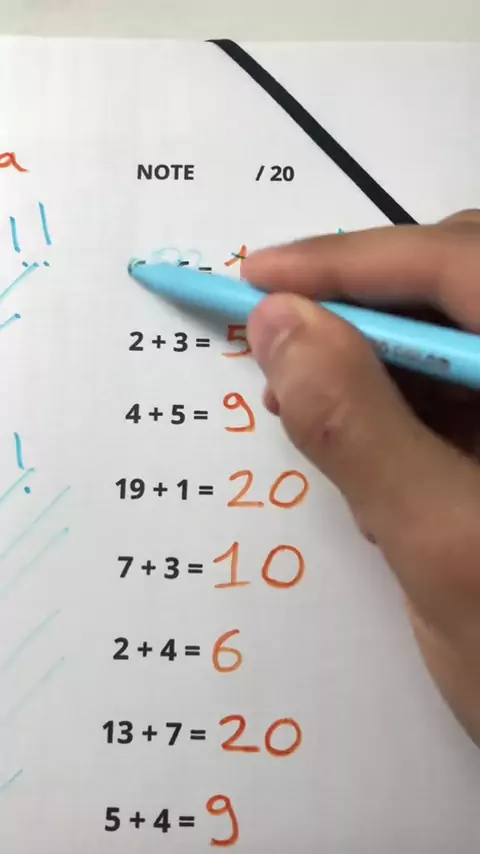 a
NOTE / 20
2 + 3 = 5
4 + 5 = 9
19 + 1 = 20
7 + 3 = 10
2 + 4 = 6
13 + 7 = 20
5 + 4 = 9